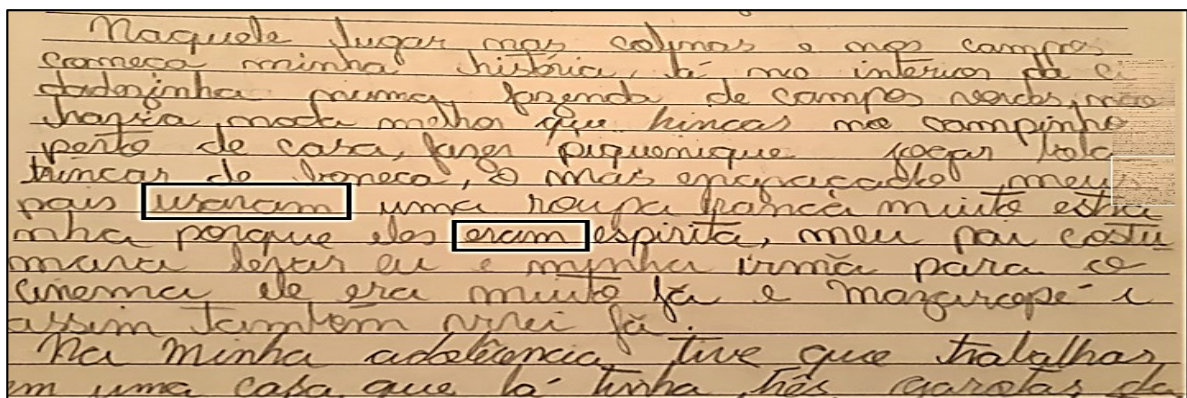 Naquele lugar nas colinas e nos campos
comeca minha história, lá no interior da ci
dadezinha numa, fazenda de campos verdes, não
havia nada melhor que brincar no campinho
perto de casa, fazer piquenique jogar bola
brincar de boneca, o mas engraçado meus
pais usaram uma roupa branca muito estra
nha porque eles eram espirita, meu pai costu
mava levar eu e minha irmã para o
cinema ele era muito fã e Mazarope i
assim também virei fã.
Na minha adolecencia tive que trabalhar
em uma casa que lá tinha três garotas da